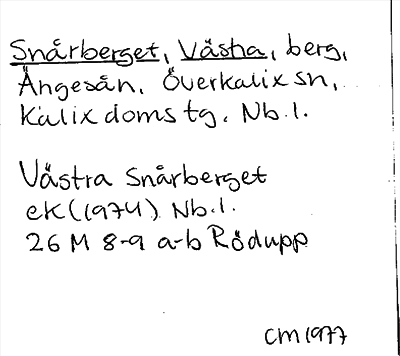 Snårberget, Västra, berg,
Ängesån, Överkalix sn,
Kalix doms tg. Nb.l.
Västra Snårberget
ek (1974) Nb.l.
26 M 8-9 a-b Rödupp
CM 1977